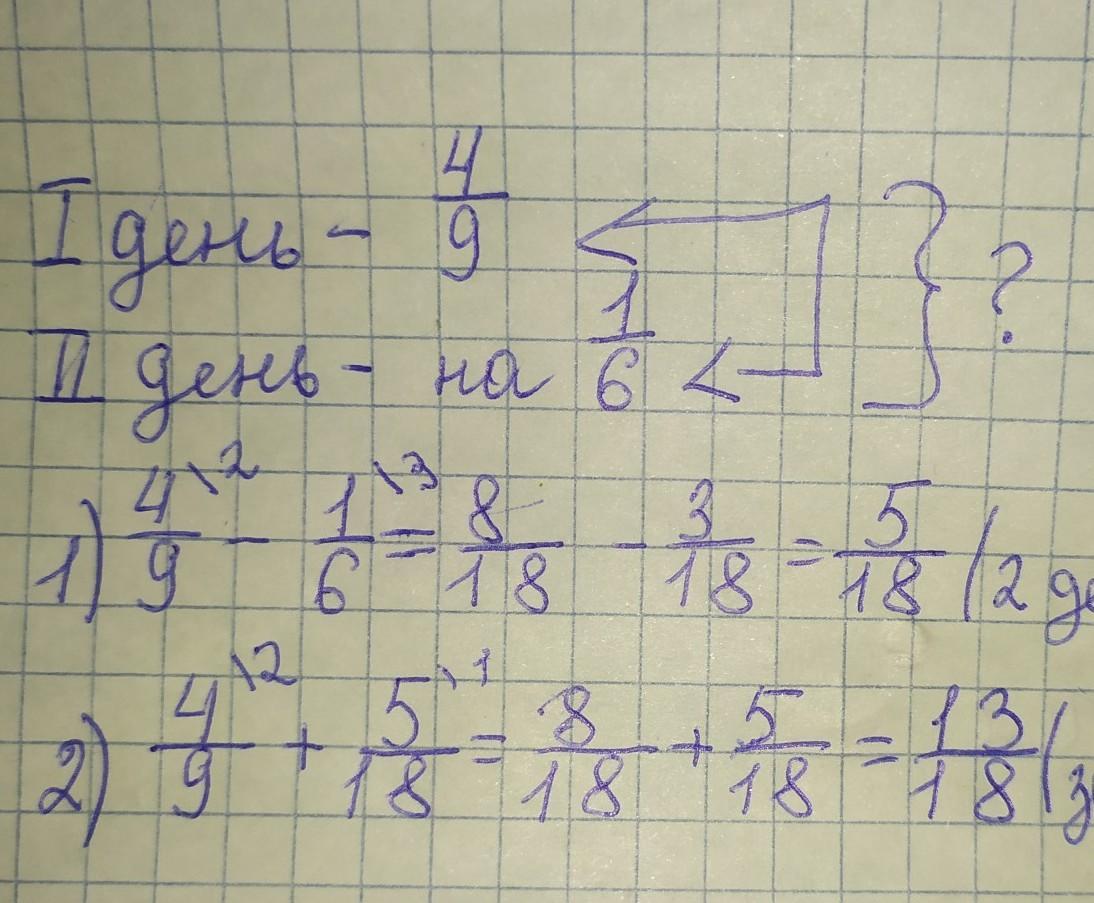 I день - 4/9 } ?
II день - на 1/6 <
1) 4/9 \2 - 1/6 \3 = 8/18 - 3/18 = 5/18 (2 де
2) 4/9 \2 + 5/18 \1 = 8/18 + 5/18 = 13/18 (